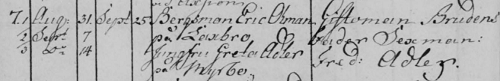 7. 1 Aug: 31 Sept 25 Bergsman Eric Ohman Giftoman Brudens
2 Sept 7 på Zaxbro, broder Sexman:
3 Do 14 Jungfru Greta Adler Fred: Adler.
på Myrbo,